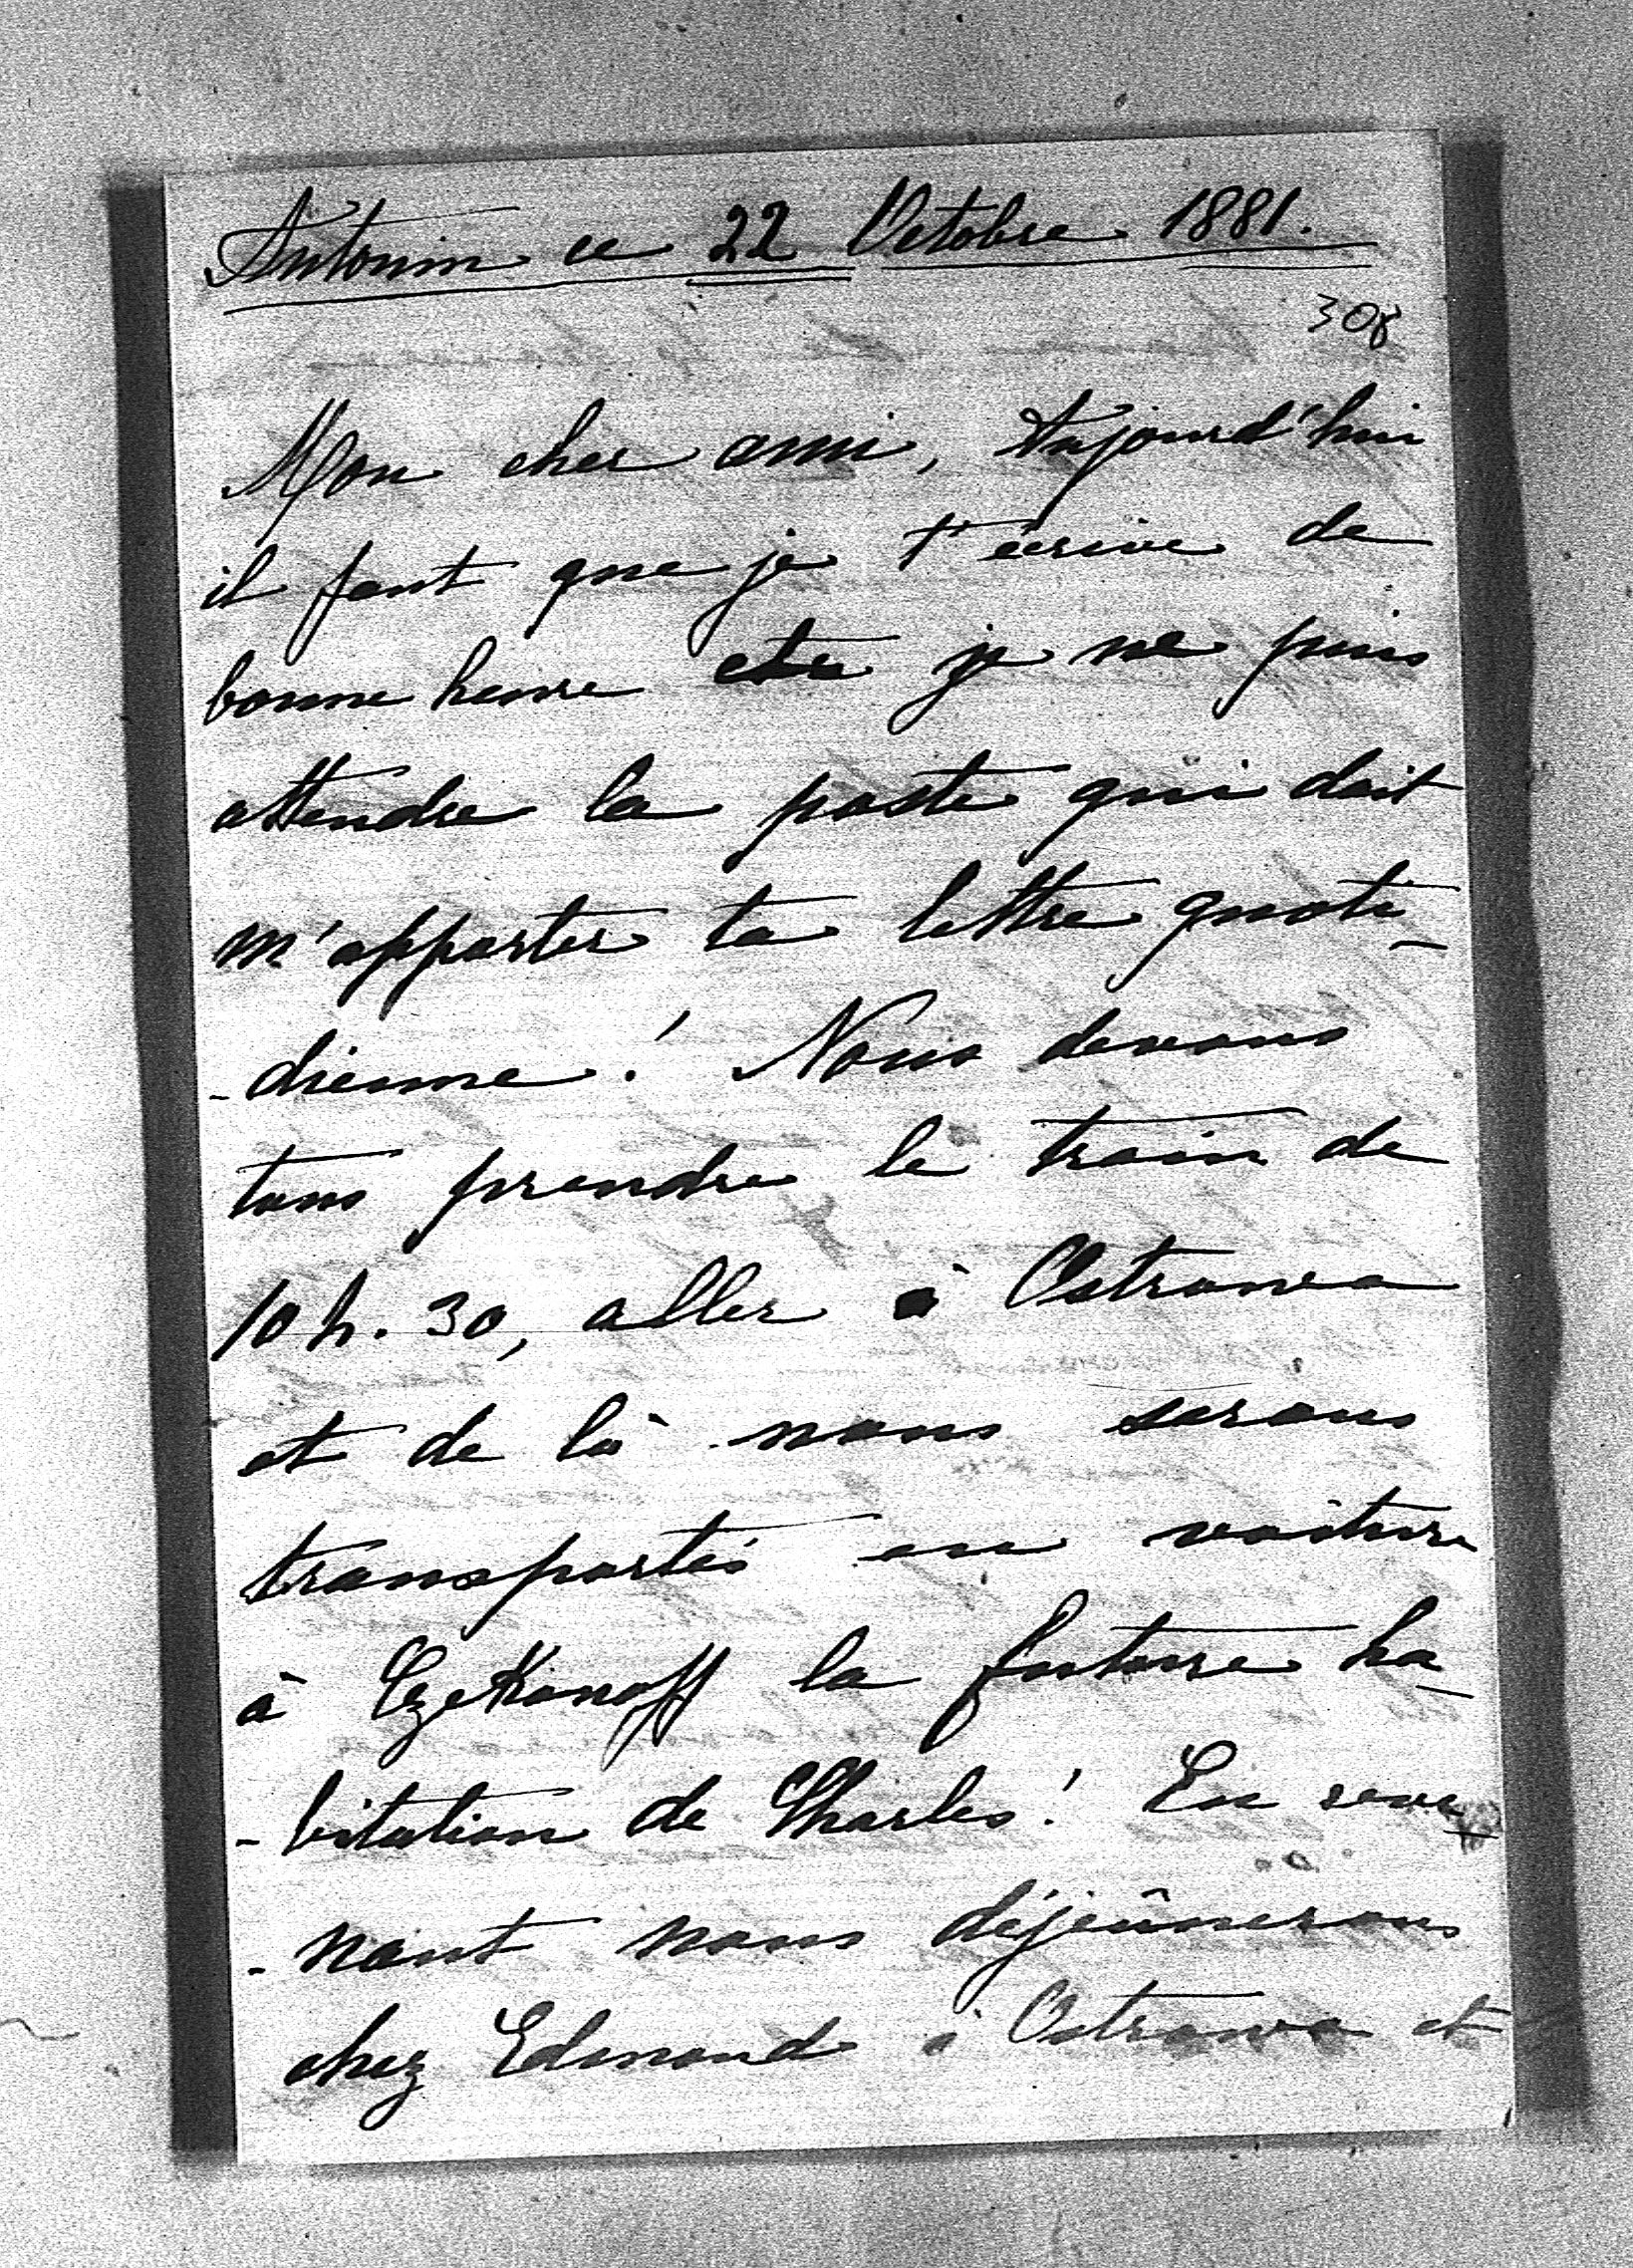 Antonin ce 22 Octobre 1881.
308
Mon cher ami, Aujourd'hui
il faut que je t'écrive de
bonne heure et je ne puis
attendre la poste qui doit
m'apporter ta lettre quoti-
-dienne! Nous devons
tous prendre le train de
10 h. 30, aller à Ostrowa
et de là nous serons
transportés en voiture
à Czekanoff la future ha-
-bitation de Charles! En reve-
-nant nous déjeûnerons
chez Edmond à Ostrowo et